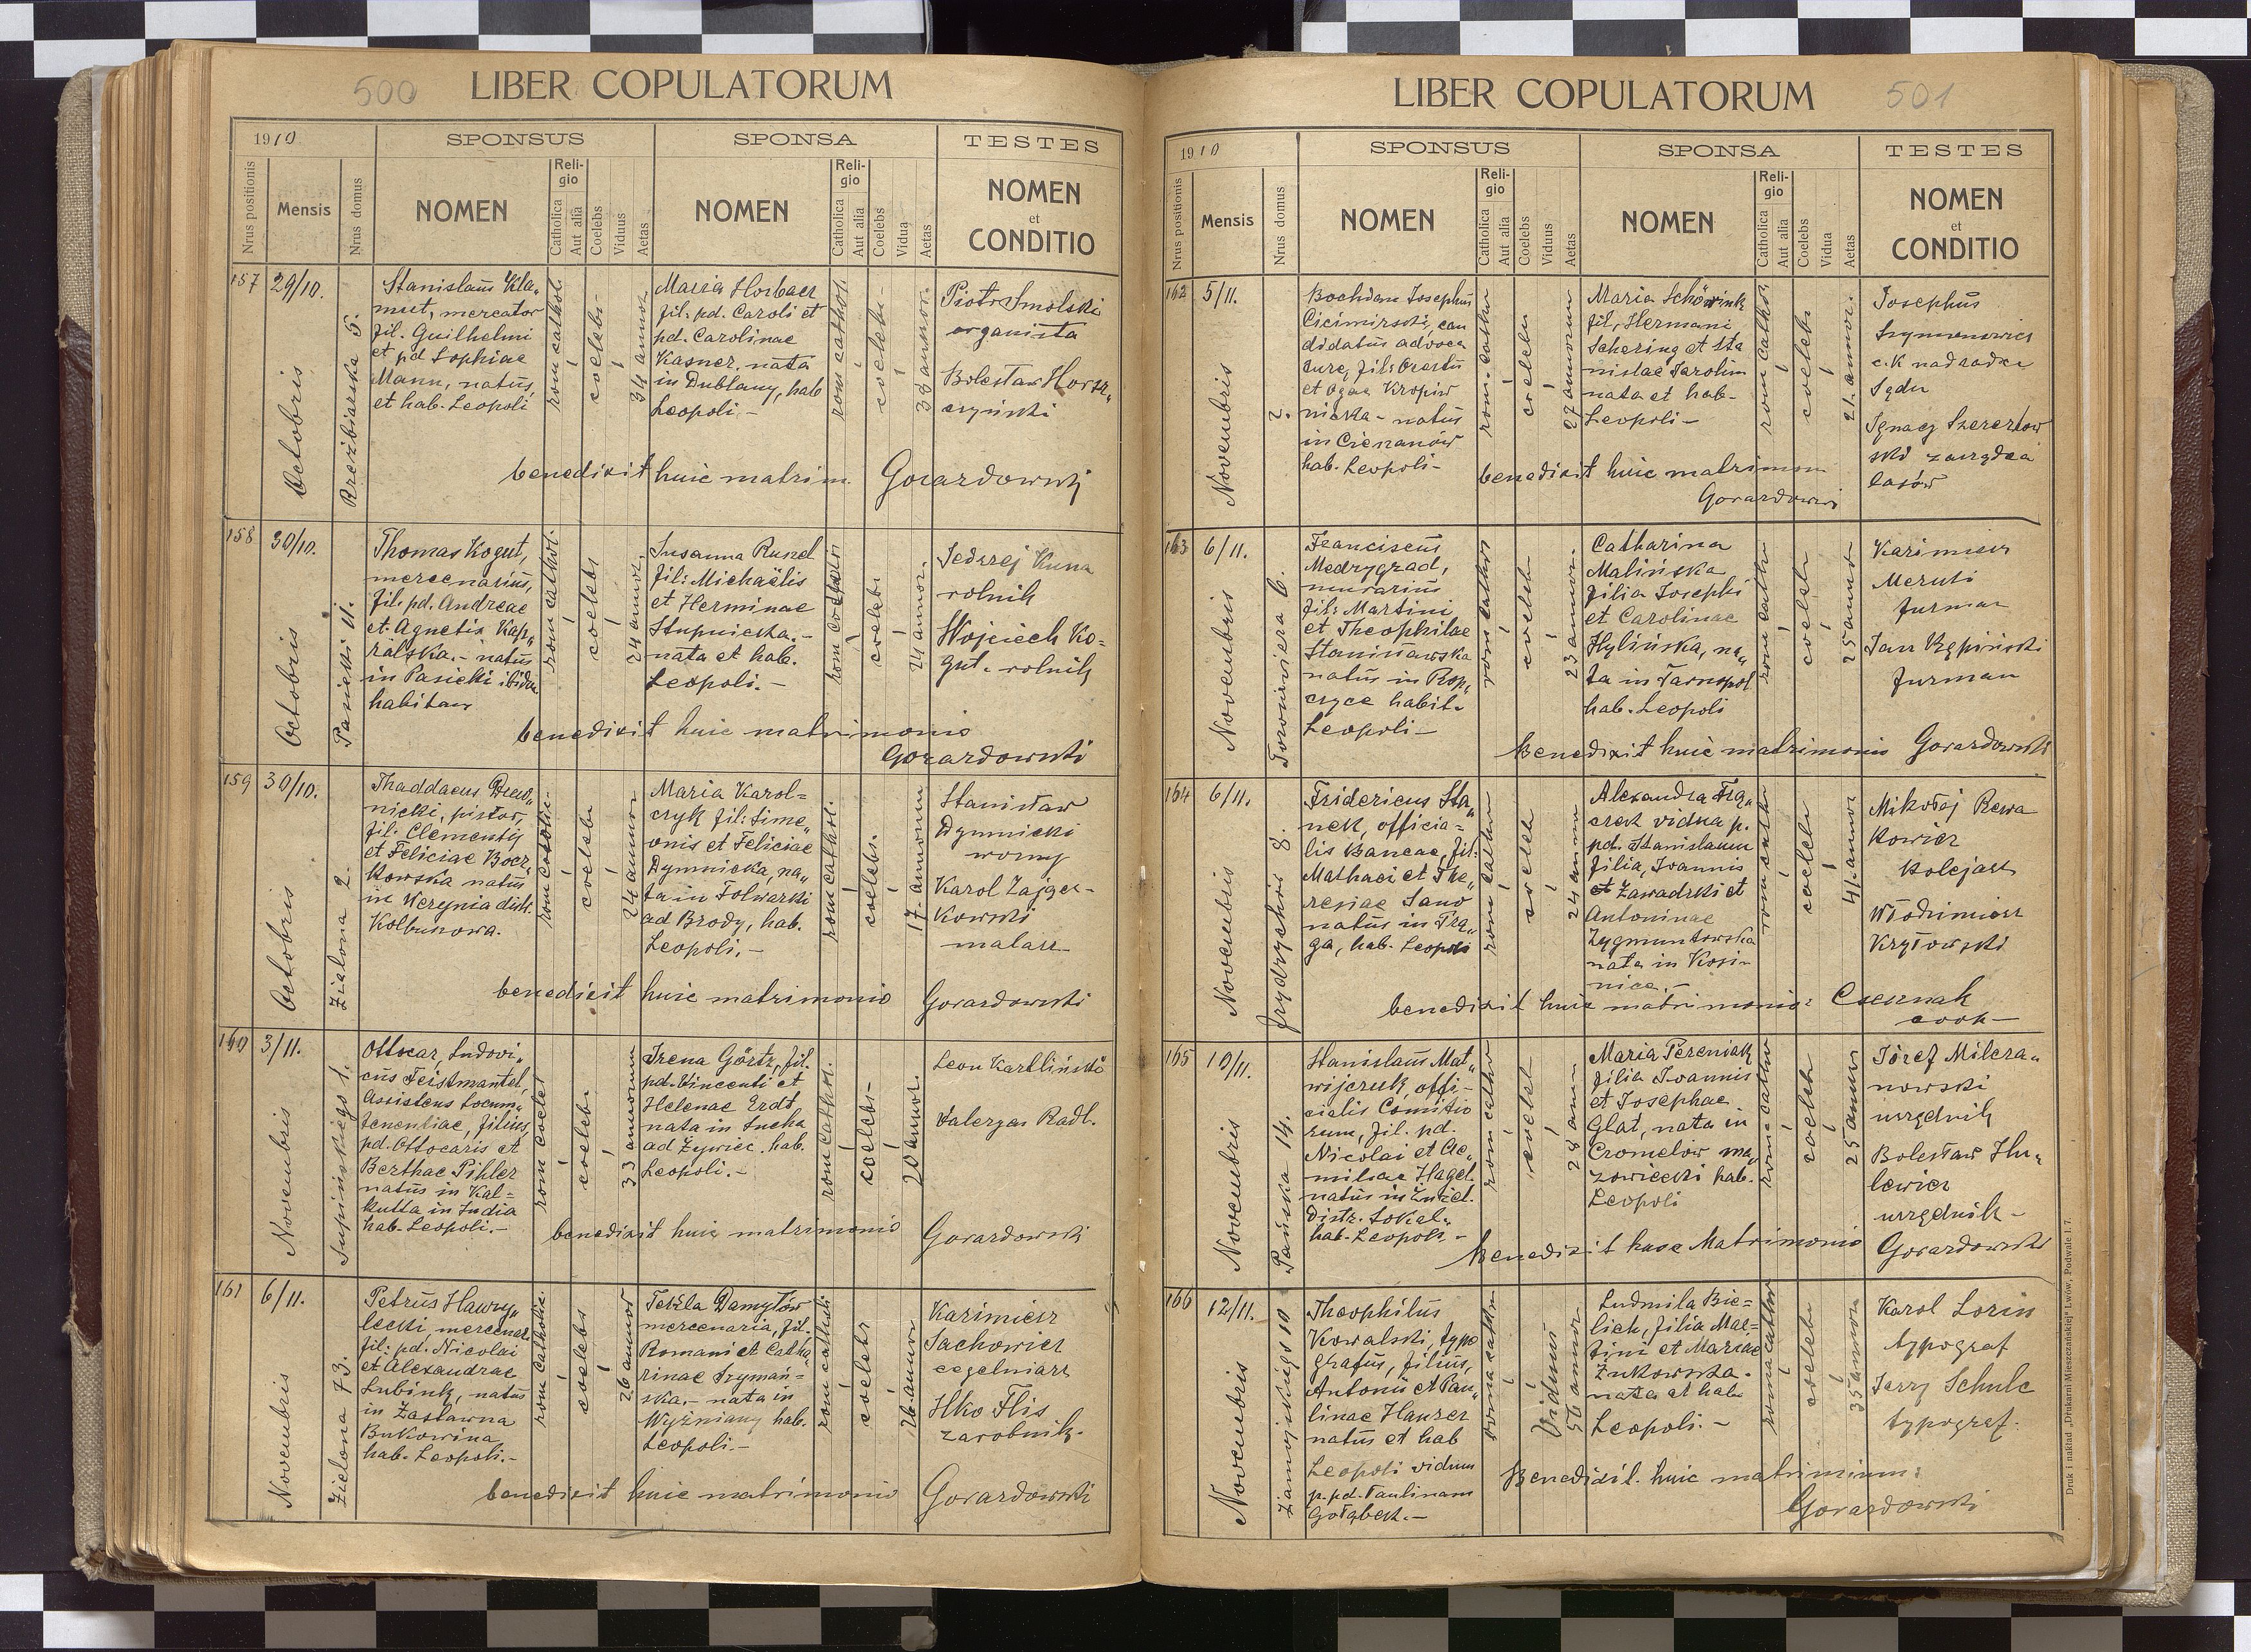 500 LIBER COPULATORUM
1910 SPONSUS SPONSA TESTES
Nrus positionis Mensis Nrus domus NOMEN Religio Catholica Aut alia Coelebs Viduus Aetas NOMEN Religio Catholica Aut alia Coelebs Vidua Aetas NOMEN et CONDITIO
157 29/10. Octobris 5.
Stanislaus Kla„
mut, mercator
fil. Guilhelmi
et pd Sophiae
Mann, natus
et hab. Leopoli
rom cathol. coelebs 34 annor.
Maria Horbacz
fil: pd. Caroli et
pd. Carolinae
Kasner. nata
in Dublany, hab
Leopoli.-
rom cathol. coelebs
Piotr Smolski
organista
Bolesław Horsz„
czyński
benedixit huic matrim. Gorazdowski
158 30/10. Octobris Pasieki 11.
Thomas Kogut,
mercenarius,
fil. pd. Andreae
et Agnetis Kap„
ralska.- natus
in Pasieki ibidem
habitans
rom cathol. coelebs 24 annor.
Susanna Rund
fil: Michaëlis
et Herminae
Stupnicka.-
nata et hab.
Leopoli.-
coelebs 24 annor.
Jędrzej Kuna
rolnik
Wojciech Ko=
gut. rolnik
benedixit huic matrimonio
Gorazdowski
159 30/10. Octobris Zielona 2.
Thaddaeus Drew„
nicki, pistor,
fil. Clementis
et Feliciae Bocz„
kowska natus
in Werynia distr.
Kolbuszowa.
coelebs 24 annor
Maria Karol=
czyk fil: Sime„
onis et Feliciae
Dymnicka, na„
ta in Folwarki
ad Brody, hab.
Leopoli.-
rom cathol. coelebs. 17 annorum
Stanisław
Dymnicki
woźny
Karol Zającz-
kowski
malarz
benedixit huic matrimonio Gorazdowski
160 3/11. Novembris Supińskiego 1.
Ottocar, Ludovi„
cus Feistmantel,
Assistens Locum„
tenentiae, filius,
pd. Ottocaris et
Berthae Pihler
natus in Kal=
kutta in India
hab. Leopoli.-
coelebs 33 annorum
Irena Görtz, fil.
pd. Vincenti et
Helenae Erdt
nata in Sucha
ad Żywiec. hab.
Leopoli.-
rom cathol. coelebs- 20 annor.
Leon Karbliński
Walerjan Radl.
benedixit huic matrimonio Gorazdowski
161 6/11. Novembris Zielona 73.
Petrus Hawry„
lecki mercenar.
fil: pd. Nicolai
et Alexandrae
Lubink, natus
in Zastawna
Bukowina
hab. Leopoli.-
rom catholic. coelebs 26 annor
Tekla Damytów
mercenaria, fil.
Romani et Catha„
rinae Szymań=
ska.- nata in
Wyżniany hab.
Leopoli.-
coelebs 26 annor
Kazimierz
Sachowicz
cegelniarz
Ilko Flis
zarobnik.
benedixit huic matrimonio Gorazdowski
LIBER COPULATORUM 501
1910 SPONSUS SPONSA TESTES
Nrus positionis Mensis Nrus domus NOMEN Religio Catholica Aut alia Coelebs Viduus Aetas NOMEN Religio Catholica Aut alia Coelebs Vidua Aetas NOMEN et CONDITIO
162 5/11. Novembris 2.
Bochdan Josephus
Cicimirski, can
didatus advoca
turae, fil: Orestis
et Olgae Kropiw
nicka - natus
in Cieszanów
hab. Leopoli-
coelebs 27 annorum
Maria Schönink
fil. Hermani
Schering et Sta
nislae Jarolim
nata et hab-
Leopoli-
rom cathol. coelebs 21 annor.
Josephus
Szymonowicz
c.k nadradca
Sądu
Ignacy Szczerbow
ski zarządca
lasów
benedixit huic matrimon
Gorazdowski
163 6/11. Novembris 6.
Franciscus
Medrygrad,
murarius
fil: Martini
et Theophilae
Stanisławska
natus in Rop„
czyce habit.
Leopoli-
coelebs 23 annor.
Catharina
Malińska
filia Josephi
et Carolinae
Hylińska, na„
ta in Tarnopol
hab. Leopoli
coelebs 25 annor
Kazimierz
Meruti
furman
Jan Rzepiński
furman
Benedixit huic matrimonio Gorazdowski
164 6/11. Novembris Frydrychów 8.
Fridericus Sta„
nek, officia=
lis Bancae, fil:
Mathaei et The„
resiae Sano
natus in Pra„
ga, hab. Leopoli
coelebs 24 annor
Alexandra Fra„
czek vidua p.
pd. Stanislaum
filia, Joannis
et Zawadzki et
Antoninae
Zygmuntowska
nata in Kosi-
nice.-
coelebs 41 annor
Mikołaj Rewa
kowicz
kolejarz
Włodzimierz
Kryłowski
benedixit huic matrimonio: Czernak
coop-
165 10/11. Novembris Pańska 14.
Stanislaus Mat„
wijczuk, offi-
cialis Comitio
rum, fil. pd.
Nicolai et Ae„
miliae Hagel.
natus in Żużel.
distr. Sokal„
hab. Leopoli-
coelebs 28 annor
Maria Pereniak
filia Joannis
et Josephae
Glat, nata in
Cromelow ma„
zowiecki hab.
Leopoli
coelebs 25 annor
Józef Milcza„
nowski
urzędnik
Bolesław Hu„
lewicz
urzędnik-
Benedixit huic Matrimonio Gorazdowski
166 12/11. Novembris Zamojskiego 10
Theophilus
Kowalski, typo
grafus, filius,
Antonii et Pau„
linae Hauser
natus et hab
Leopoli viduus
p. pd. Paulinam
Gołąbek.-
Viduus 56 annor
Ludmila Bie=
lich, filia Mar=
tini et Mariae
Żukowska.
nata et hab.
Leopoli.-
coelebs 35 annor
Karol Lorin
typograf
Jerzy Schulc
typograf.
Benedixit. huic matrimonium:
Gorazdowski
Druk i nakład „Drukarni Mieszczańskiej“ Lwów, Podwale l. 7.